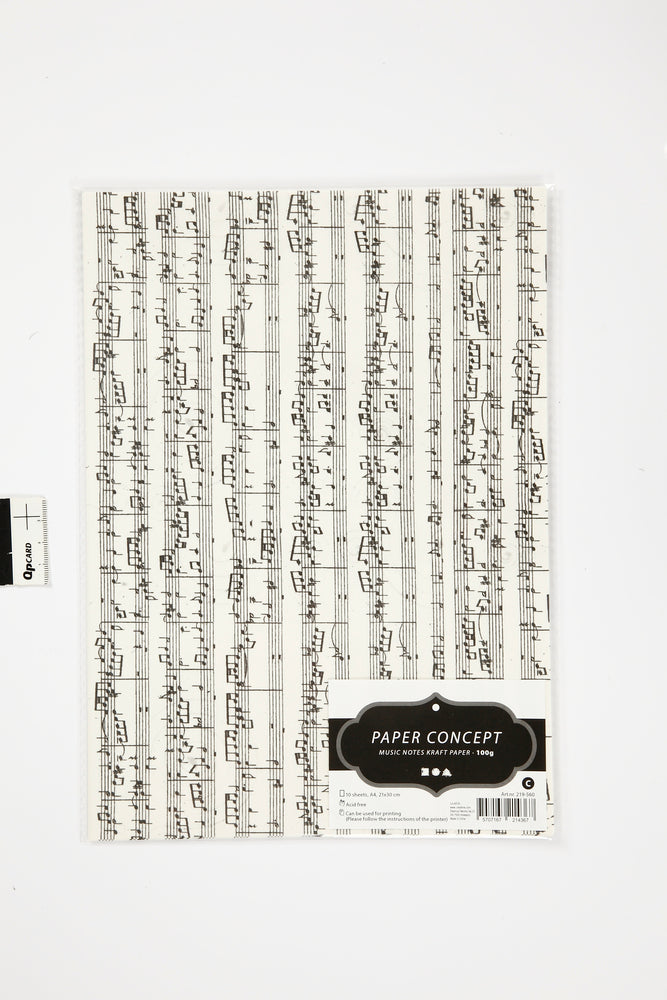 QPCARD
PAPER CONCEPT
MUSIC NOTES KRAFT PAPER - 100g
C
10 sheets, A4, 21x30 cm
Art.nr. 219-560
Acid free
Can be used for printing
(Please follow the instructions of the printer)
5707167 214367